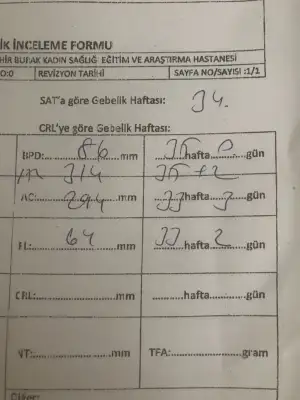 İK İNCELEME FORMU
HİR BURAK KADIN SAĞLIĞI EĞİTİM VE ARAŞTIRMA HASTANESİ
O:0 REVİZYON TARİHİ SAYFA NO/SAYISI :1/1
SAT'a göre Gebelik Haftası: 34.
CRL'ye göre Gebelik Haftası:
BPD:.....86.....mm 35 hafta 0 gün
314 35 + 2
AC:.....294.....mm 33 hafta 3 gün
FL:.....64.....mm 33 hafta 2 gün
CRL:..........mm ..........hafta..........gün
NT:..........mm TFA:..........gram
Diğer: